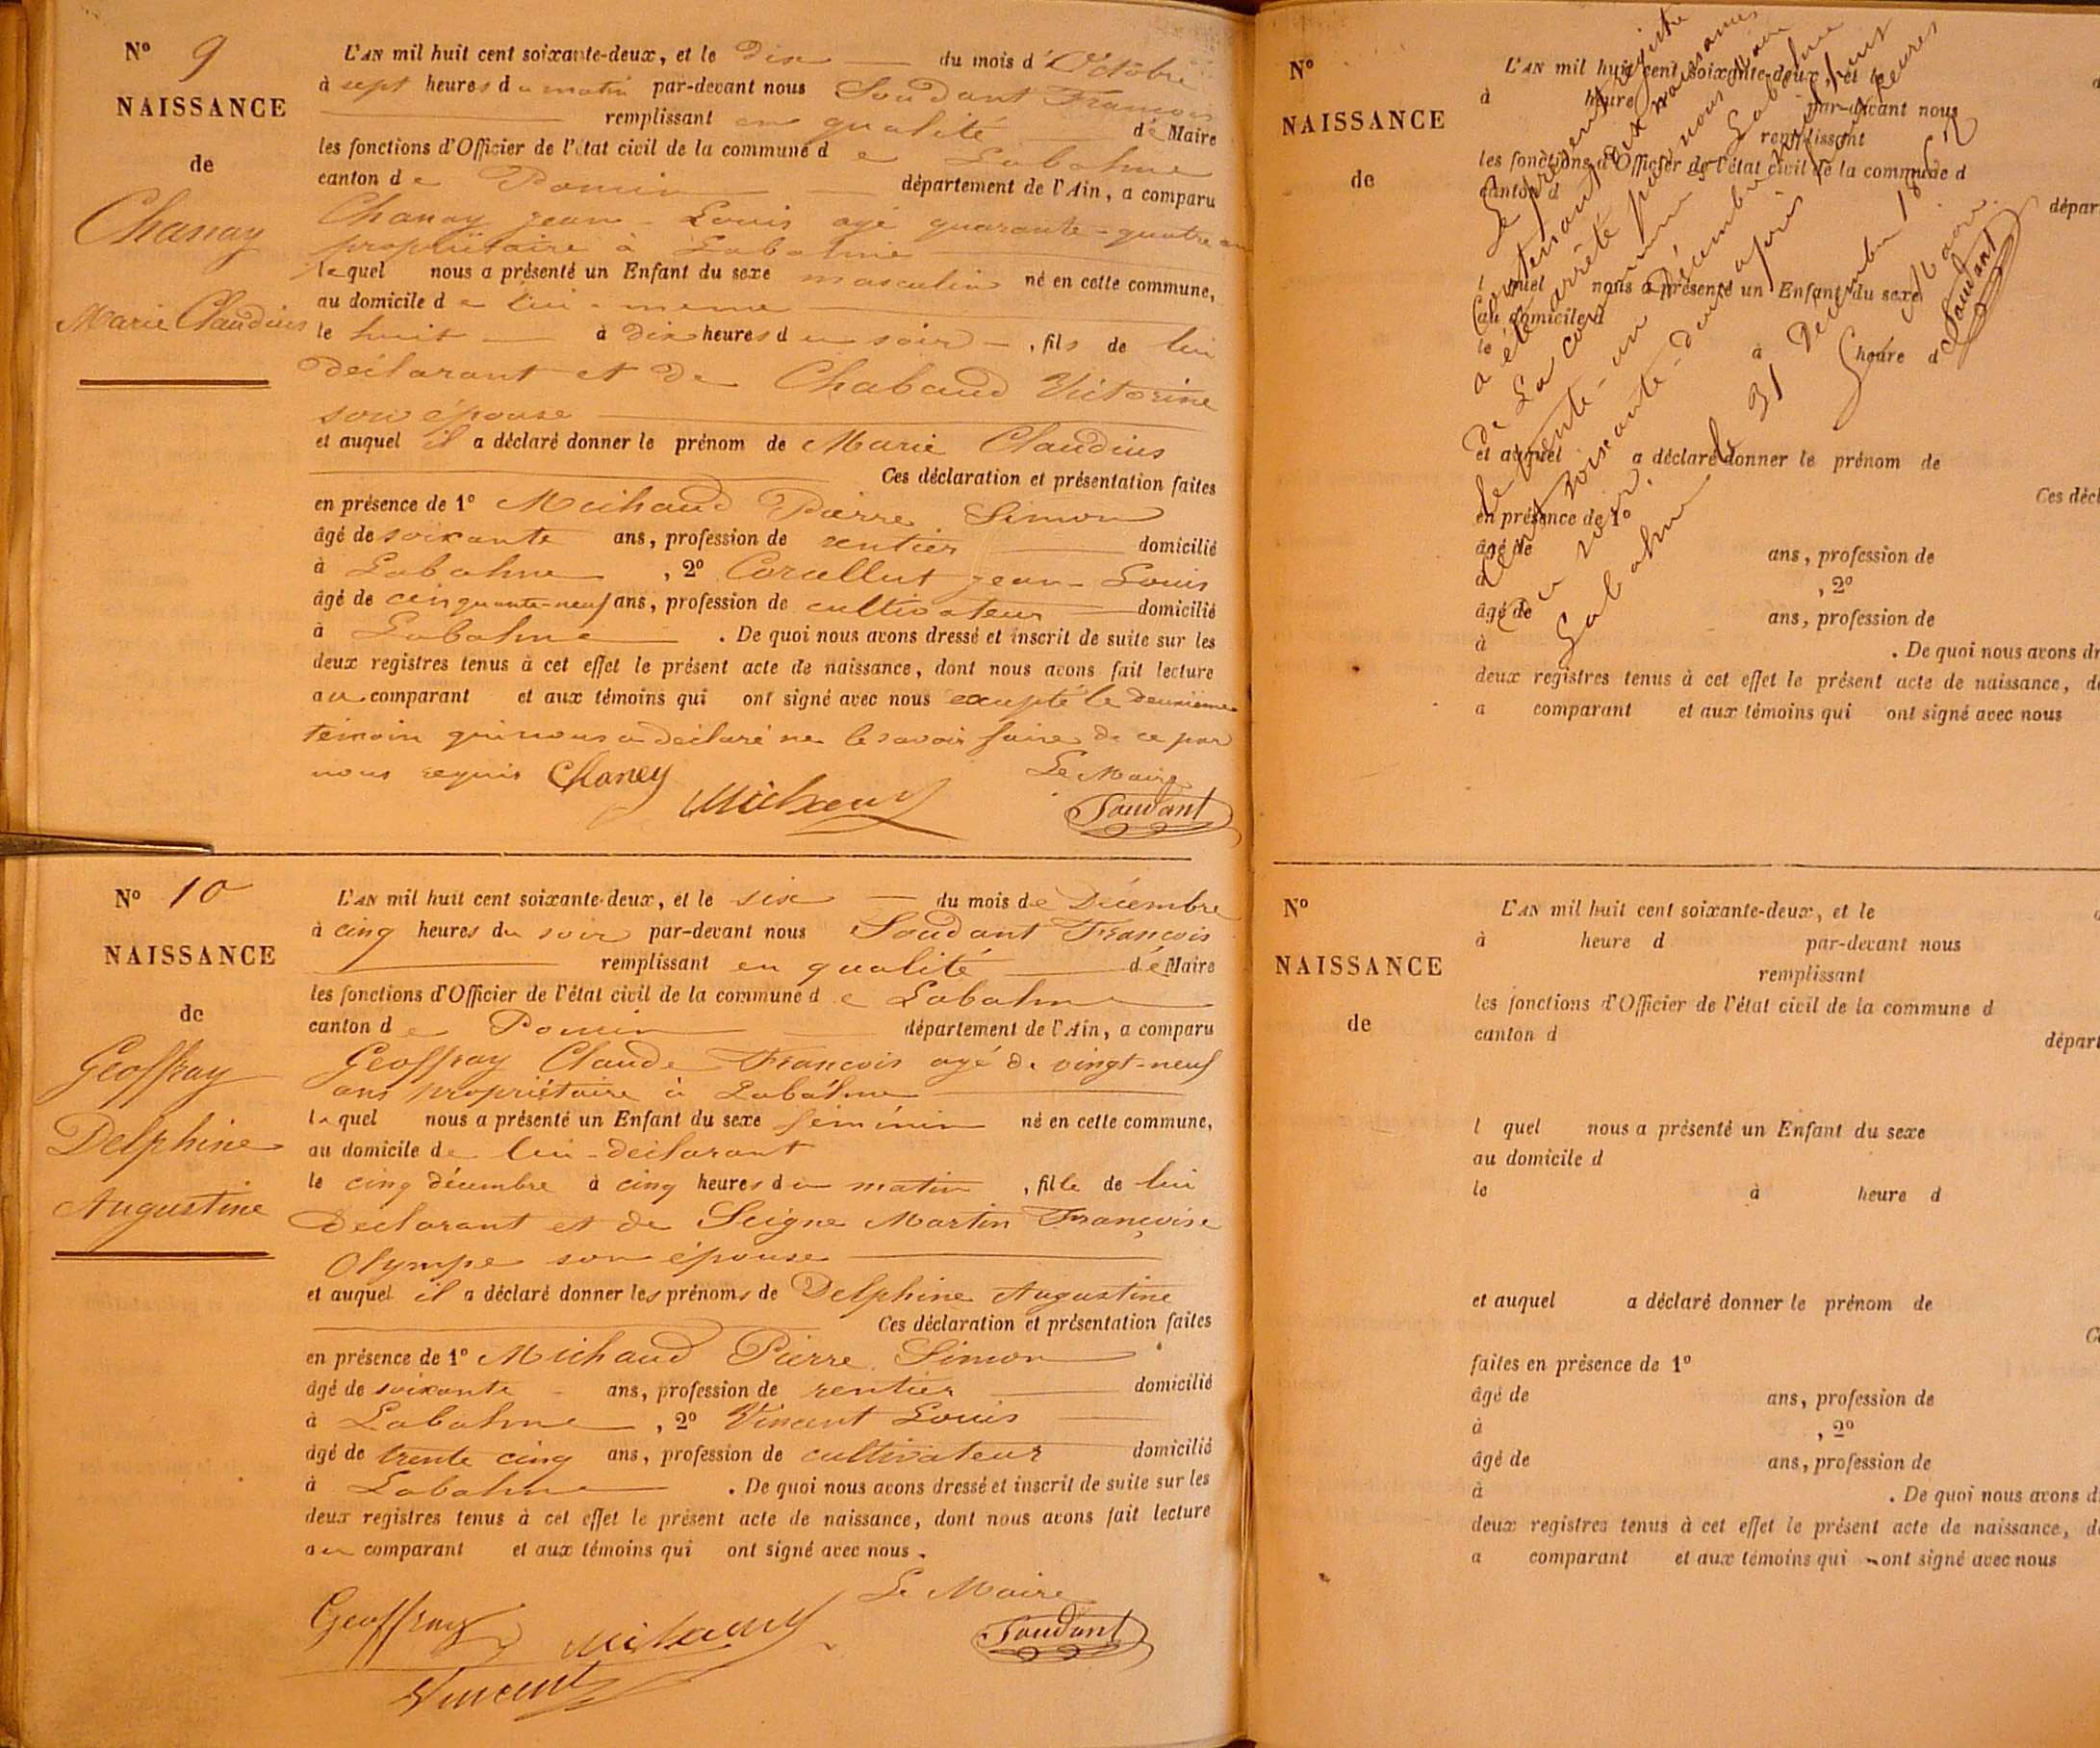 N° 9
NAISSANCE
de
Chanay
Marie Claudius
L'AN mil huit cent soixante-deux, et le dix du mois d'Octobre
à sept heures du matin par-devant nous Soudant François
remplissant en qualité de Maire
les fonctions d'Officier de l'état civil de la commune de Labalme
canton de Poncin département de l'Ain, a comparu
Chanay jean-Louis agé quarante-quatre ans
propriétaire à Labalme
lequel nous a présenté un Enfant du sexe masculin né en cette commune,
au domicile de lui-même
le huit à dix heures du soir, fils de lui
déclarant et de Chabaud Victorine
son épouse
et auquel il a déclaré donner le prénom de Marie Claudius
Ces déclaration et présentation faites
en présence de 1° Michaud Pierre Simon
âgé de soixante ans, profession de rentier domicilié
à Labalme, 2° Corcellut jean-Louis
âgé de cinquante-neuf ans, profession de cultivateur domicilié
à Labalme. De quoi nous avons dressé et inscrit de suite sur les
deux registres tenus à cet effet le présent acte de naissance, dont nous avons fait lecture
au comparant et aux témoins qui ont signé avec nous excepté le deuxième
témoin qui nous a déclaré ne le savoir faire de ce par
nous requis Chaney Le Maire
Michaud Soudant
N° 10
NAISSANCE
de
Geoffray
Delphine
Augustine
L'AN mil huit cent soixante-deux, et le six du mois de Décembre
à cinq heures du soir par-devant nous Soudant François
remplissant en qualité de Maire
les fonctions d'Officier de l'état civil de la commune de Labalme
canton de Poncin département de l'Ain, a comparu
Geoffray Claude François agé de vingt-neuf
ans propriétaire à Labalme
lequel nous a présenté un Enfant du sexe féminin né en cette commune,
au domicile de lui-déclarant
le cinq décembre à cinq heures du matin, fille de lui
déclarant et de Seigne Martin Françoise
Olympe son épouse
et auquel il a déclaré donner les prénoms de Delphine Augustine
Ces déclaration et présentation faites
en présence de 1° Michaud Pierre Simon
âgé de soixante ans, profession de rentier domicilié
à Labalme, 2° Vincent Louis
âgé de trente cinq ans, profession de cultivateur domicilié
à Labalme. De quoi nous avons dressé et inscrit de suite sur les
deux registres tenus à cet effet le présent acte de naissance, dont nous avons fait lecture
au comparant et aux témoins qui ont signé avec nous.
Le Maire
Geoffray Michaud Soudant
Vincent
N°
NAISSANCE
de
L'AN mil huit cent soixante-deux, et le
à heure par-devant nous
remplissant
les fonctions d'Officier de l'état civil de la commune d
canton d
dépar
l quel nous a présenté un Enfant du sexe
au domicile d
le à heure d
et auquel a déclaré donner le prénom de
Ces décl
en présence de 1°
âgé de ans, profession de
à , 2°
âgé de ans, profession de
à . De quoi nous avons dr
deux registres tenus à cet effet le présent acte de naissance, d
a comparant et aux témoins qui ont signé avec nous
Le présent registre
contenant dix naissances
a été arrêté par nous Maire
de La commune de Labalme
le trente-un Décembre mil huit
cent soixante-deux après heures
du soir.
Labalme le 31 Décembre 1862
Le Maire
Soudant
N°
NAISSANCE
de
L'AN mil huit cent soixante-deux, et le
à heure d par-devant nous
remplissant
les fonctions d'Officier de l'état civil de la commune d
canton d
départ
l quel nous a présenté un Enfant du sexe
au domicile d
le à heure d
et auquel a déclaré donner le prénom de
faites en présence de 1°
âgé de ans, profession de
à , 2°
âgé de ans, profession de
à . De quoi nous avons d
deux registres tenus à cet effet le présent acte de naissance, d
a comparant et aux témoins qui ont signé avec nous